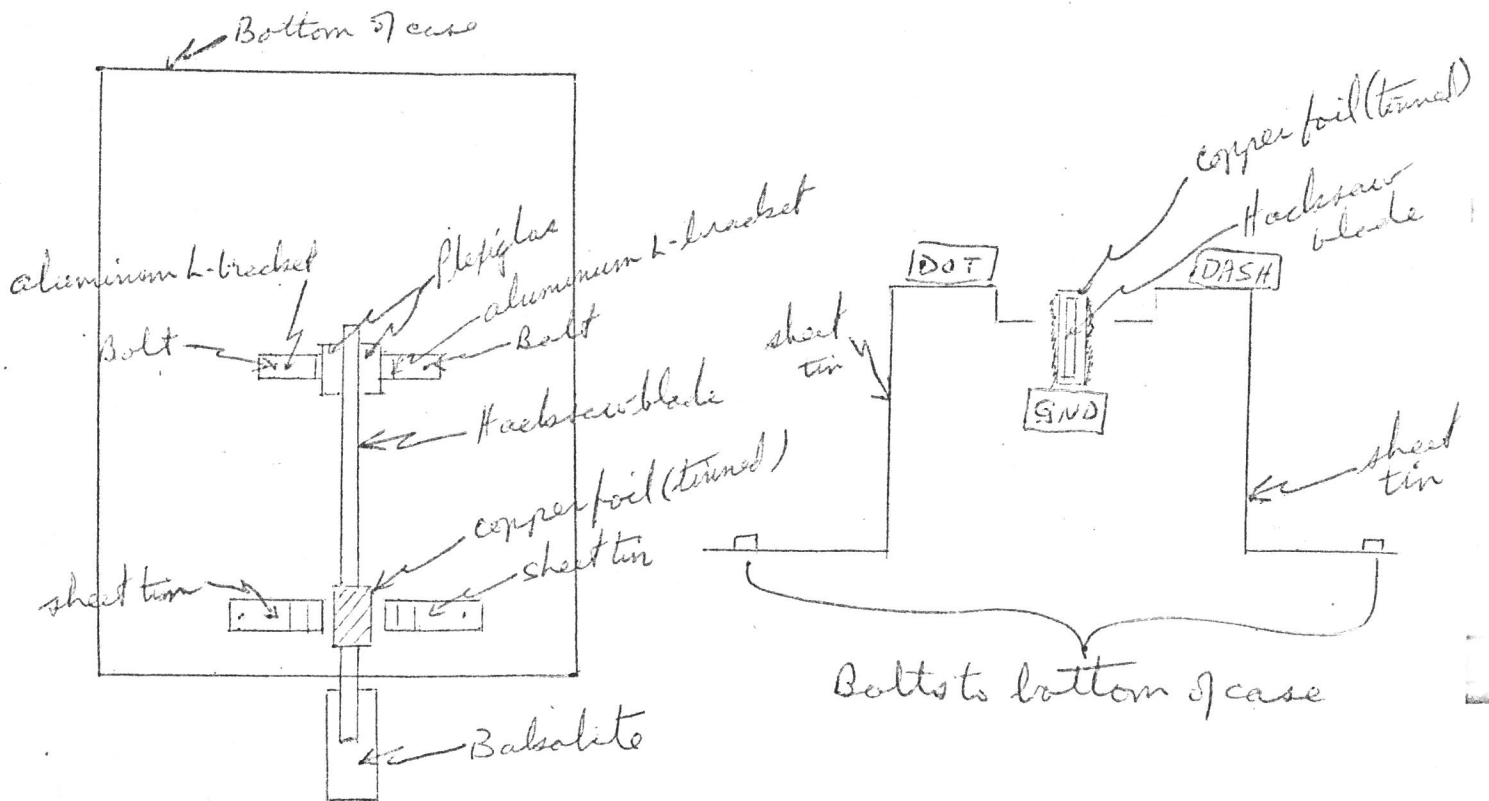 Bottom of case
aluminum L-bracket
Plexiglas
aluminum L-bracket
Bolt
Bolt
Hacksaw blade
copper foil (tinned)
sheet tin
sheet tin
Balsalite
copper foil (tinned)
Hacksaw
blade
DOT
DASH
GND
sheet
tin
sheet
tin
Bolts to bottom of case